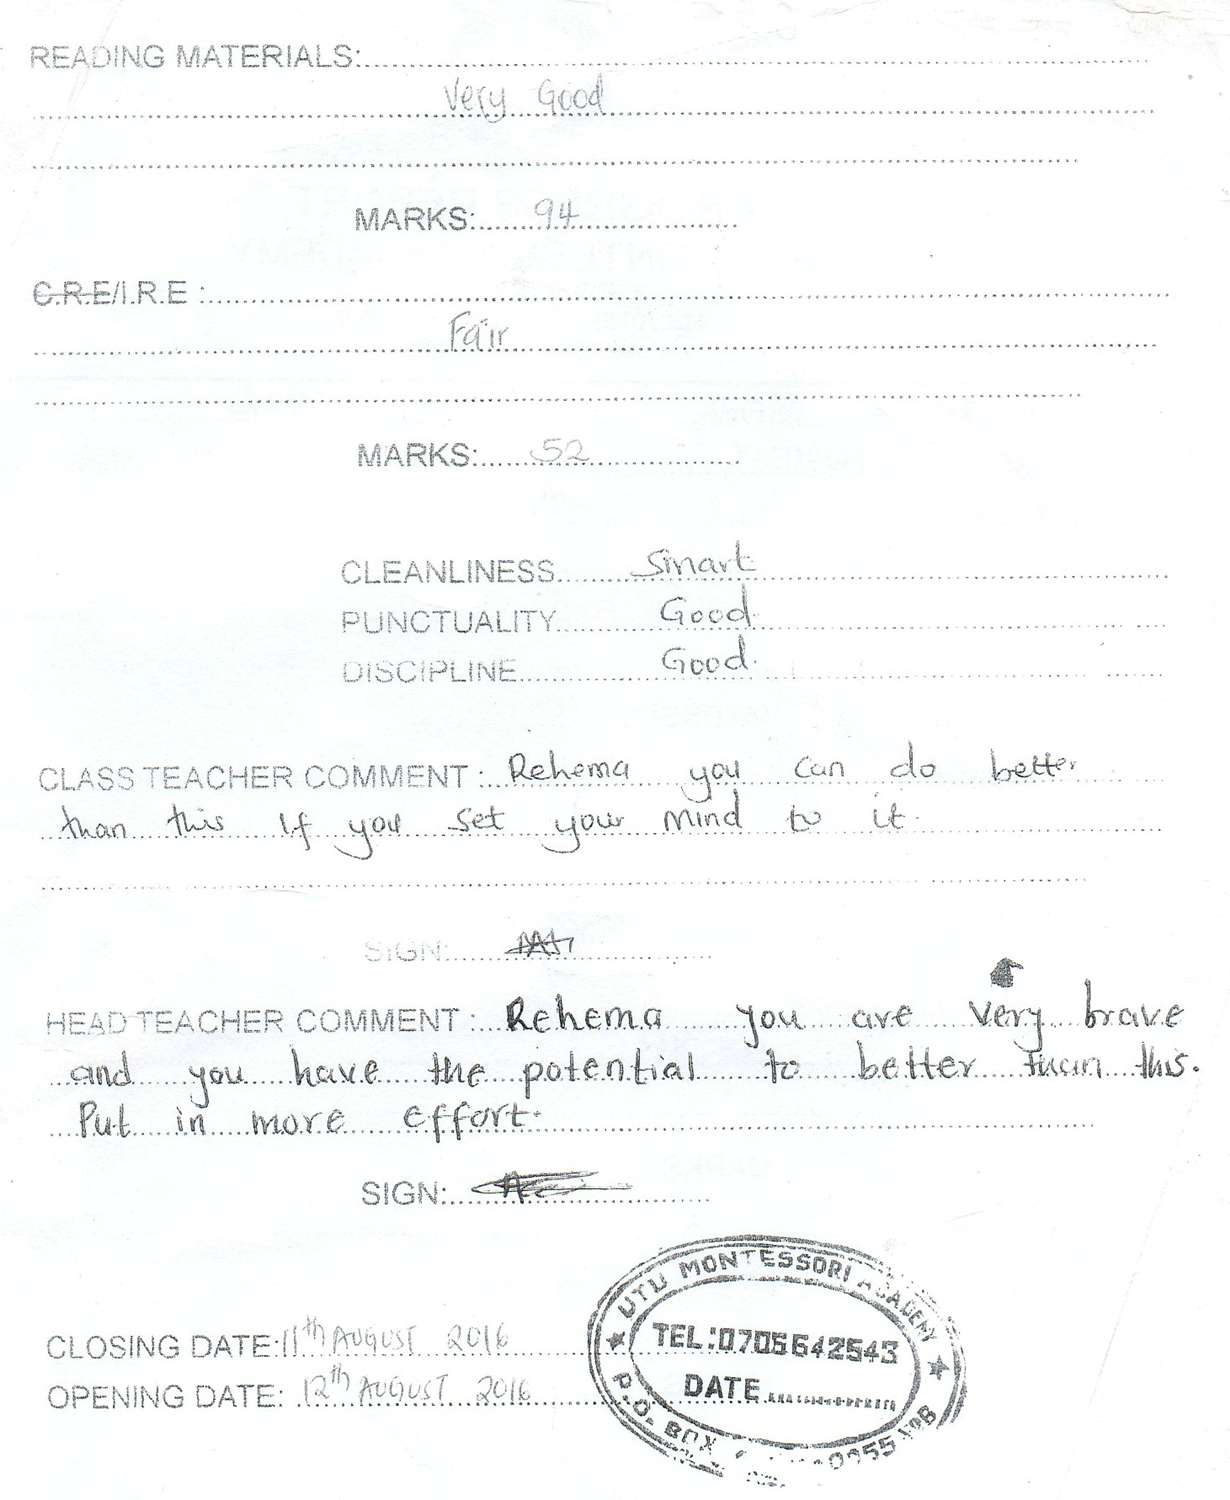 READING MATERIALS:
Very Good
MARKS: 94
C.R.E/I.R.E :
Fair
MARKS: 52
CLEANLINESS Smart
PUNCTUALITY Good.
DISCIPLINE Good.
CLASS TEACHER COMMENT : Rehema you can do better
than this if you set your mind to it.
SIGN:
HEAD TEACHER COMMENT : Rehema you are very brave
and you have the potential to better than this.
Put in more effort.
SIGN:
UTU MONTESSORI ACADEMY
TEL:0705642543
DATE
P.O. BOX
CLOSING DATE: 11th AUGUST 2016
OPENING DATE: 12th AUGUST 2016